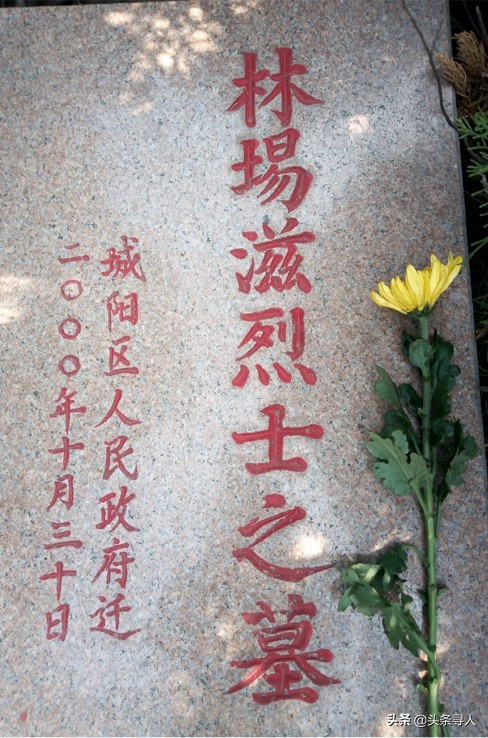 林場滋烈士之墓
城阳区人民政府迁
二〇〇〇年十月三十日
头条 @头条寻人